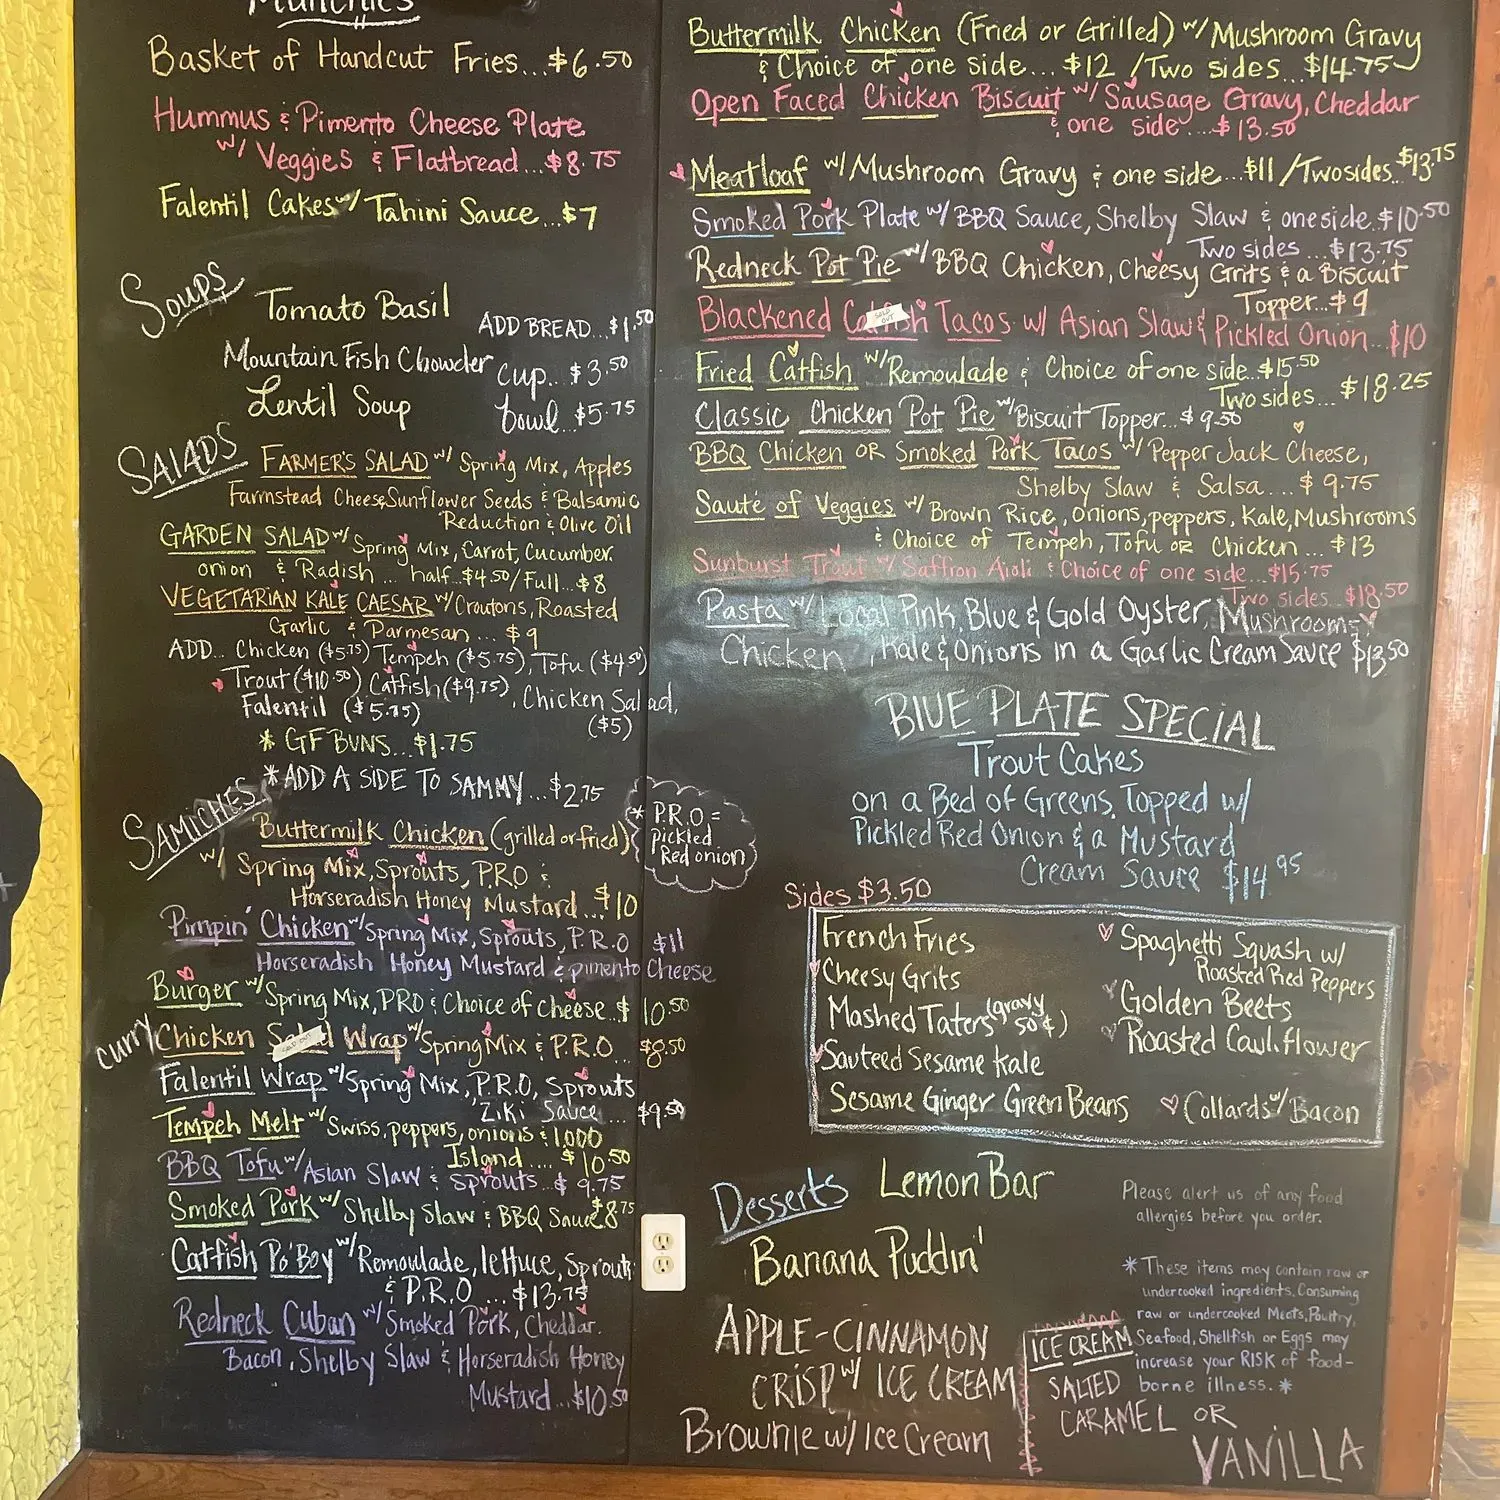 Munchies
Basket of Handcut Fries...$6.50
Hummus & Pimento Cheese Plate
w/ Veggies & Flatbread...$8.75
Falentil Cakes w/ Tahini Sauce...$7
Soups
Tomato Basil
ADD BREAD...$1.50
Mountain Fish Chowder
cup...$3.50
Lentil Soup
bowl...$5.75
SALADS
FARMER'S SALAD w/ Spring Mix, Apples
Farmstead Cheese, Sunflower Seeds & Balsamic
Reduction & Olive Oil
GARDEN SALAD w/ Spring Mix, Carrot, Cucumber
onion & Radish... half...$4.50/Full...$8
VEGETARIAN KALE CAESAR w/ Croutons, Roasted
Garlic & Parmesan...$9
ADD... Chicken ($5.75) Tempeh ($5.75), Tofu ($4.50)
Trout ($10.50) Catfish ($9.75), Chicken Salad,
Falentil ($5.75)
($5)
* GF BUNS...$1.75
* ADD A SIDE TO SAMMY...$2.75
SAMICHES
Buttermilk Chicken (grilled or fried)
w/ Spring Mix, Sprouts, P.R.O &
Horseradish Honey Mustard...$10
* P.R.O =
pickled
Red onion
Pimpin' Chicken w/ Spring Mix, Sprouts, P.R.O $11
Horseradish Honey Mustard & pimento Cheese
Burger w/ Spring Mix, PRO & Choice of cheese $10.50
curry Chicken Salad Wrap w/ Spring Mix & P.R.O... $8.50
SOLD OUT
Falentil Wrap w/ Spring Mix, P.R.O, Sprouts
Ziki Sauce $9.50
Tempeh Melt w/ Swiss, peppers, onions & 1,000
Island....$10.50
BBQ Tofu w/ Asian Slaw & Sprouts...$9.75
Smoked Pork w/ Shelby Slaw & BBQ Sauce $8.75
Catfish Po' Boy w/ Remoulade, lettuce, Sprouts
& P.R.O...$13.75
Redneck Cuban w/ Smoked Pork, Cheddar.
Bacon, Shelby Slaw & Horseradish Honey
Mustard..$10.50
Buttermilk Chicken (Fried or Grilled) w/ Mushroom Gravy
& Choice of one side...$12 /Two sides...$14.75
Open Faced Chicken Biscuit w/ Sausage Gravy, Cheddar
& one side....$13.50
Meatloaf w/ Mushroom Gravy & one side...$11 /Two sides...$13.75
Smoked Pork Plate w/ BBQ Sauce, Shelby Slaw & one side.$10.50
Two sides...$13.75
Redneck Pot Pie w/ BBQ Chicken, Cheesy Grits & a Biscuit
Topper..$9
Blackened Catfish Tacos w/ Asian Slaw & Pickled Onion...$10
SOLD OUT
Fried Catfish w/ Remoulade & Choice of one side..$15.50
Two sides...$18.25
Classic Chicken Pot Pie w/ Biscuit Topper...$9.50
BBQ Chicken OR Smoked Pork Tacos w/ Pepper Jack Cheese,
Shelby Slaw & Salsa...$9.75
Sauté of Veggies w/ Brown Rice, onions, peppers, Kale, Mushrooms
& Choice of Tempeh, Tofu or Chicken...$13
Sunburst Trout w/ Saffron Aioli & Choice of one side...$15.75
Two sides..$18.50
Pasta w/ Local Pink, Blue & Gold Oyster, Mushrooms,
Chicken, Kale & Onions in a Garlic Cream Sauce $13.50
BLUE PLATE SPECIAL
Trout Cakes
on a Bed of Greens, Topped w/
Pickled Red Onion & a Mustard
Cream Sauce $14.95
Sides $3.50
French Fries
Cheesy Grits
Mashed Taters (gravy 50¢)
Sauteed Sesame Kale
Sesame Ginger Green Beans
Spaghetti Squash w/
Roasted Red Peppers
Golden Beets
Roasted Cauliflower
Collards w/ Bacon
Desserts
Lemon Bar
Banana Puddin'
APPLE-CINNAMON
CRISP w/ ICE CREAM
Brownie w/ Ice Cream
ICE CREAM
SALTED
CARAMEL OR
VANILLA
Please alert us of any food
allergies before you order.
* These items may contain raw or
undercooked ingredients. Consuming
raw or undercooked Meats, Poultry,
Seafood, Shellfish or Eggs may
increase your RISK of food-
borne illness. *